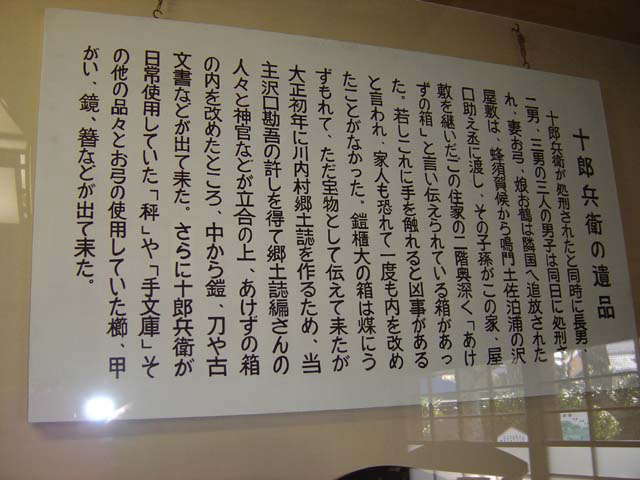 十郎兵衛の遺品
十郎兵衛が処刑されたと同時に長男
二男、三男の三人の男子は同日に処刑
れ、妻お弓、娘お鶴は隣国へ追放された
屋敷は、蜂須賀候から鳴門土佐泊浦の沢
口助え丞に渡し、その子孫がこの家、屋
敷を継いだこの住家の二階奥深く「あけ
ずの箱」と言い伝えられている箱があっ
た。若しこれに手を触れると凶事がある
と言われ、家人も恐れて一度も内を改め
たことがなかった。鎧櫃大の箱は煤にう
ずもれて、ただ宝物として伝えて来たが
大正初年に川内村郷土誌を作るため、当
主沢口勘吾の許しを得て郷土誌編さんの
人々と神官などが立合の上、あけずの箱
の内を改めたところ、中から鎧、刀や古
文書などが出て来た。さらに十郎兵衛が
日常使用していた「秤」や「手文庫」そ
の他の品々とお弓の使用していた櫛、甲
がい、鏡、簪などが出て来た。